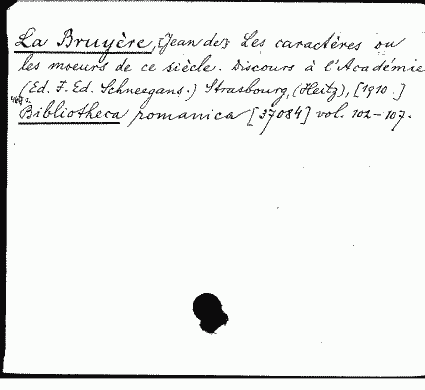 La Bruyère, [Jean de] Les caractères ou
les moeurs de ce siècle. Discours à l'Académie
(Ed. F. Ed. Schneegans.) Strasbourg, (Heitz), [1910.]
Bibliotheca romanica [37084] vol. 102-107.